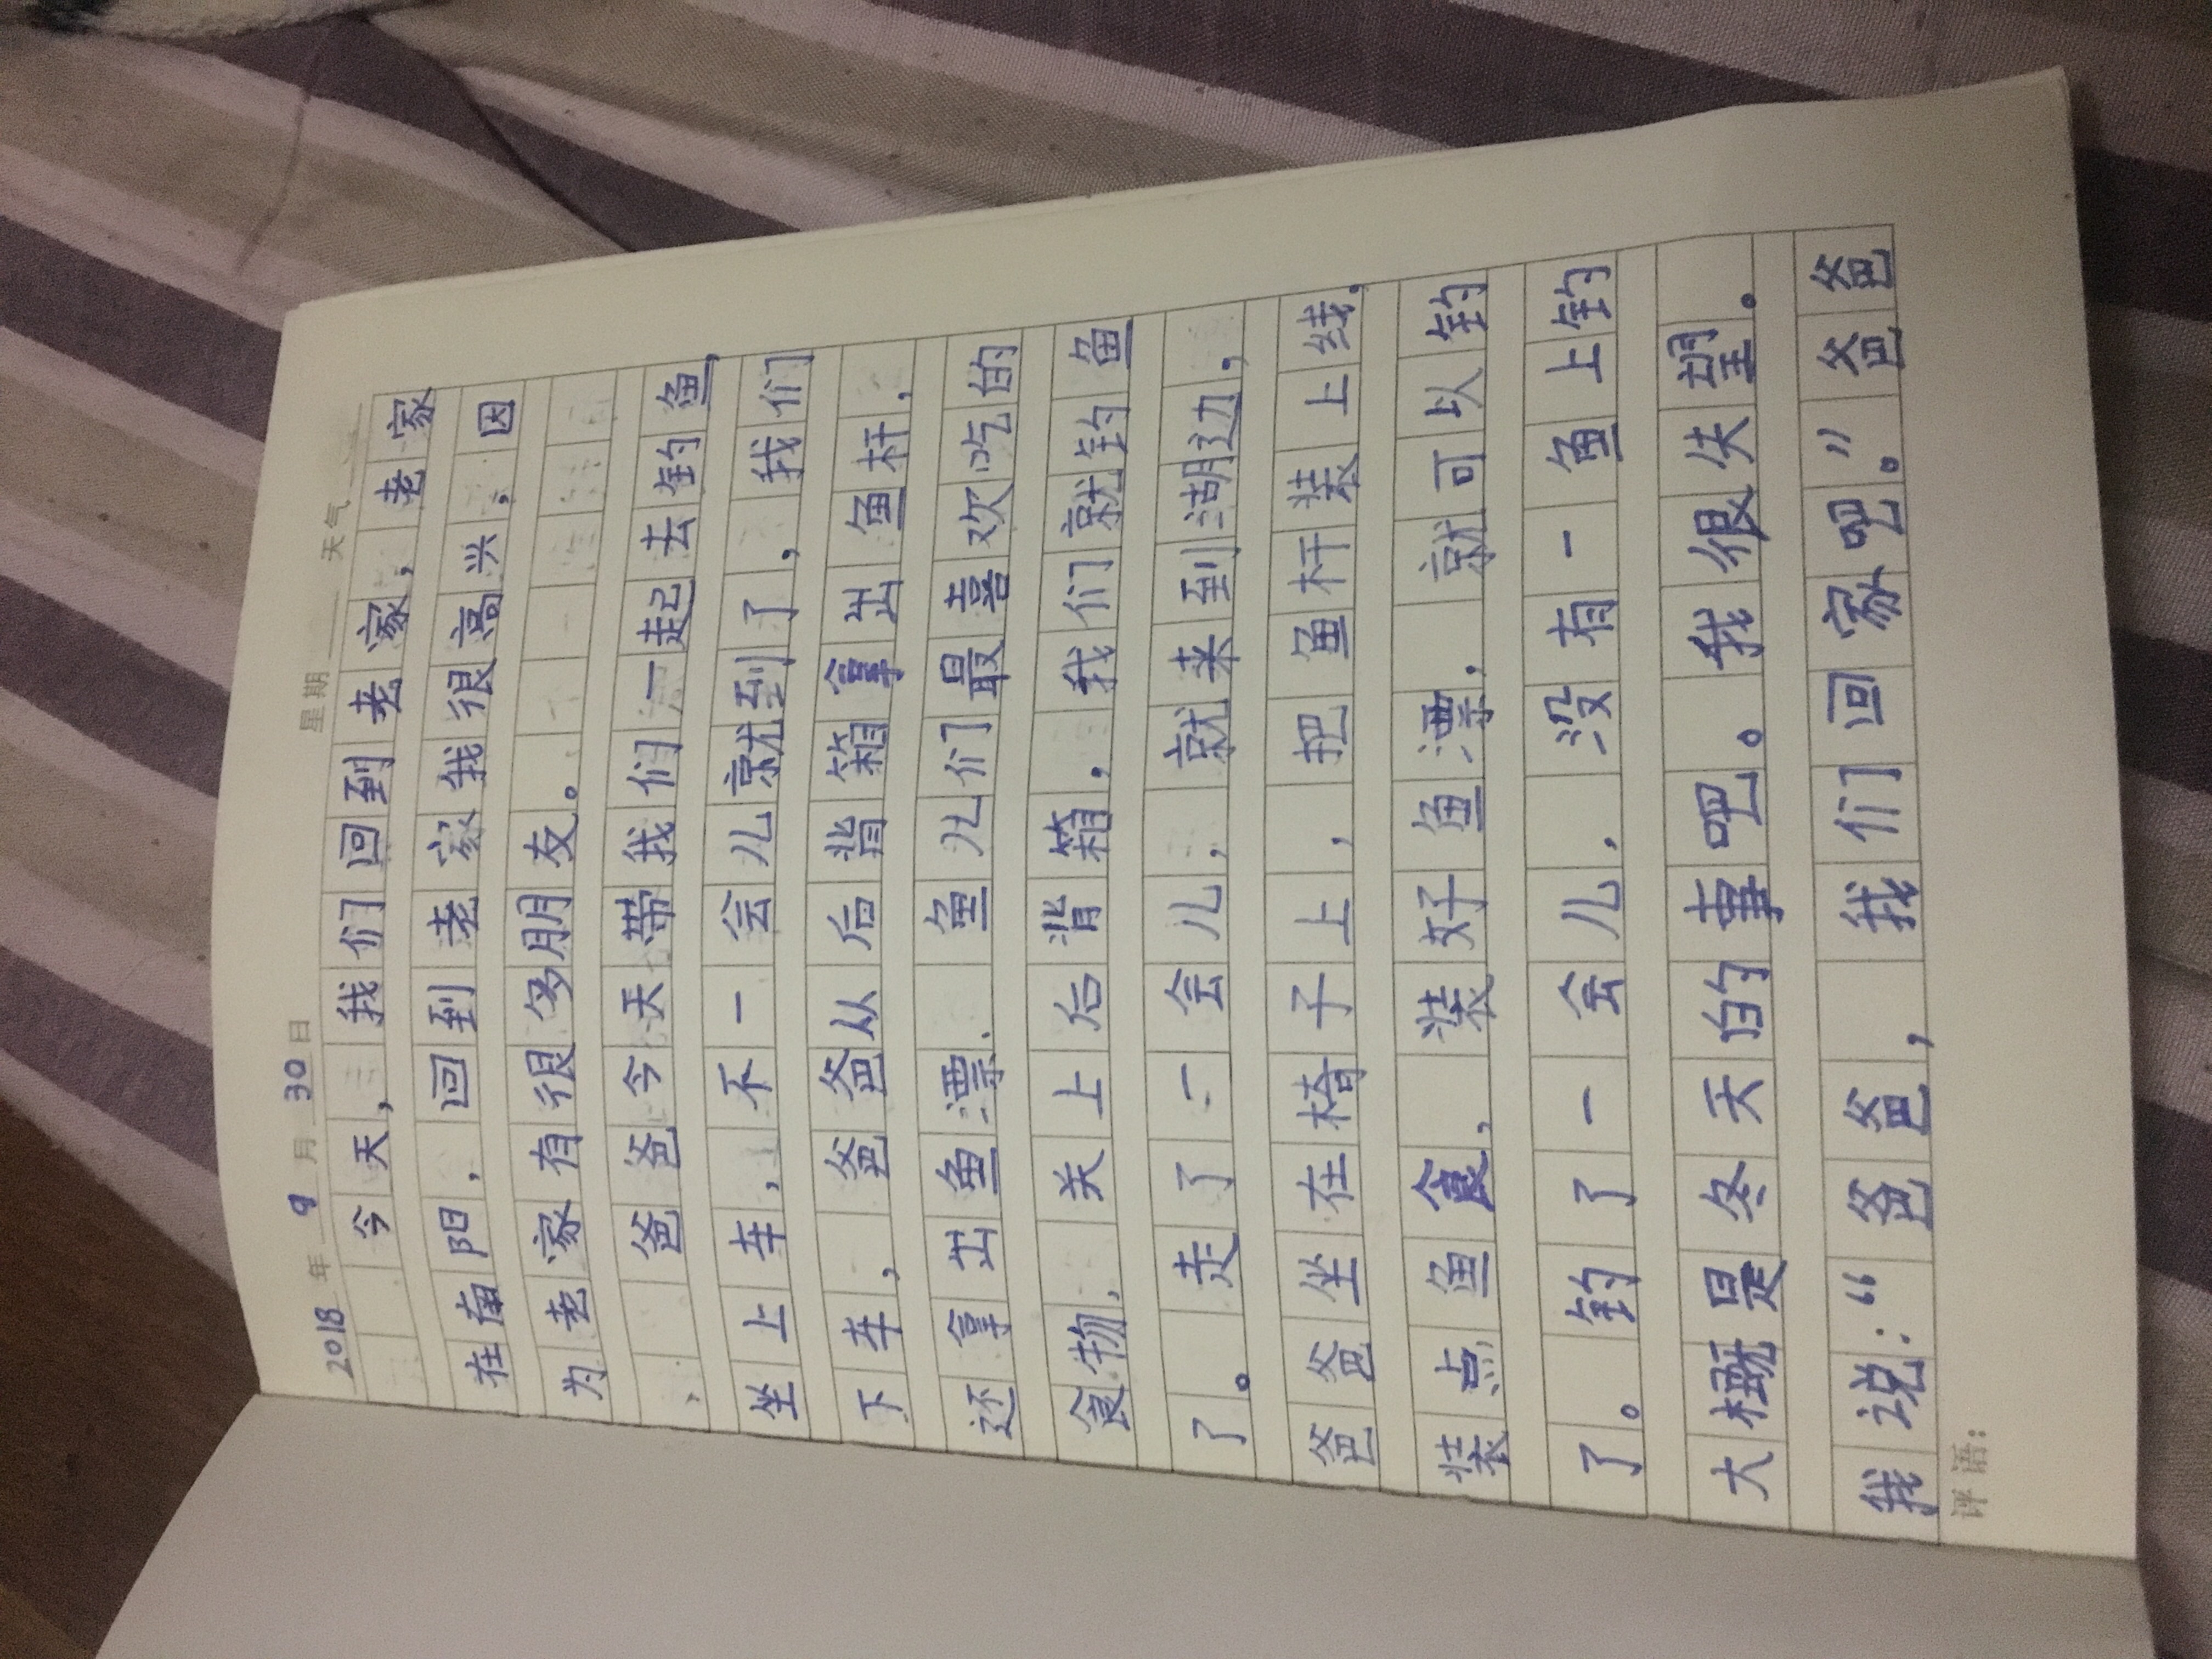 2018 年 9 月 30 日 星期 天气
今天，我们回到老家，老家
在南阳，回到老家我很高兴，因
为老家有很多朋友。
爸爸今天带我们一起去钓鱼，
坐上车，不一会儿就到了，我们
下车，爸爸从后背箱拿出鱼杆，
还拿出鱼漂.鱼儿们最喜欢吃的
食物，关上后背箱，我们就钓鱼
了。走了一会儿，就来到湖边，
爸爸坐在椅子上，把鱼杆装上线，
装点鱼食，装好鱼漂，就可以钓
了。钓了一会儿，没有一鱼上钓
大概是冬天的事吧。我很失望。
我说：“爸爸，我们回家吧。”爸爸
评语：